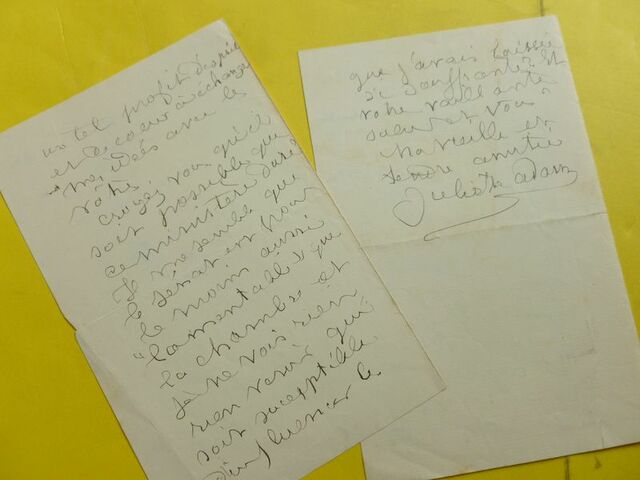 un tel profit d'esprit
et de coeur à échanger
mes idées avec les
vôtres
croyez vous qu'il
soit possible que
ce ministère dure
Je me semble que
le Sénat est pour
le moins aussi
lamentable que
la chambre et
je ne vois rien
rien venir qui
soit susceptible
d'influencer le
que j'avais laissée
si souffrante? Et
votre vaillante
soeur et vous
Marseille et
tendre amitié
Juliette Adam